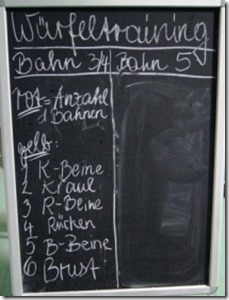 Würfeltraining
Bahn 3/4 Bahn 5
rot = Anzahl
d Bahnen
gelb:
1 K-Beine
2 Kraul
3 R-Beine
4 Rücken
5 B-Beine
6 Brust